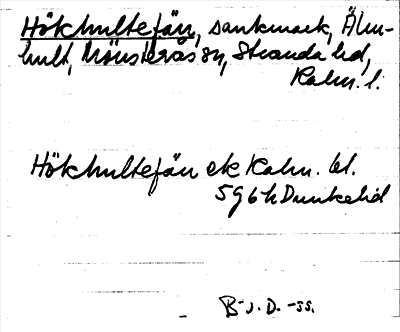 Hökhultefän, sankmark, Älm-
hult, Mönsterås sn, Stranda hd,
Kalm. l.
Hökhultefän ek Kalm. bl.
5 g 6 h Dunkehid
B-J. D. -ss.